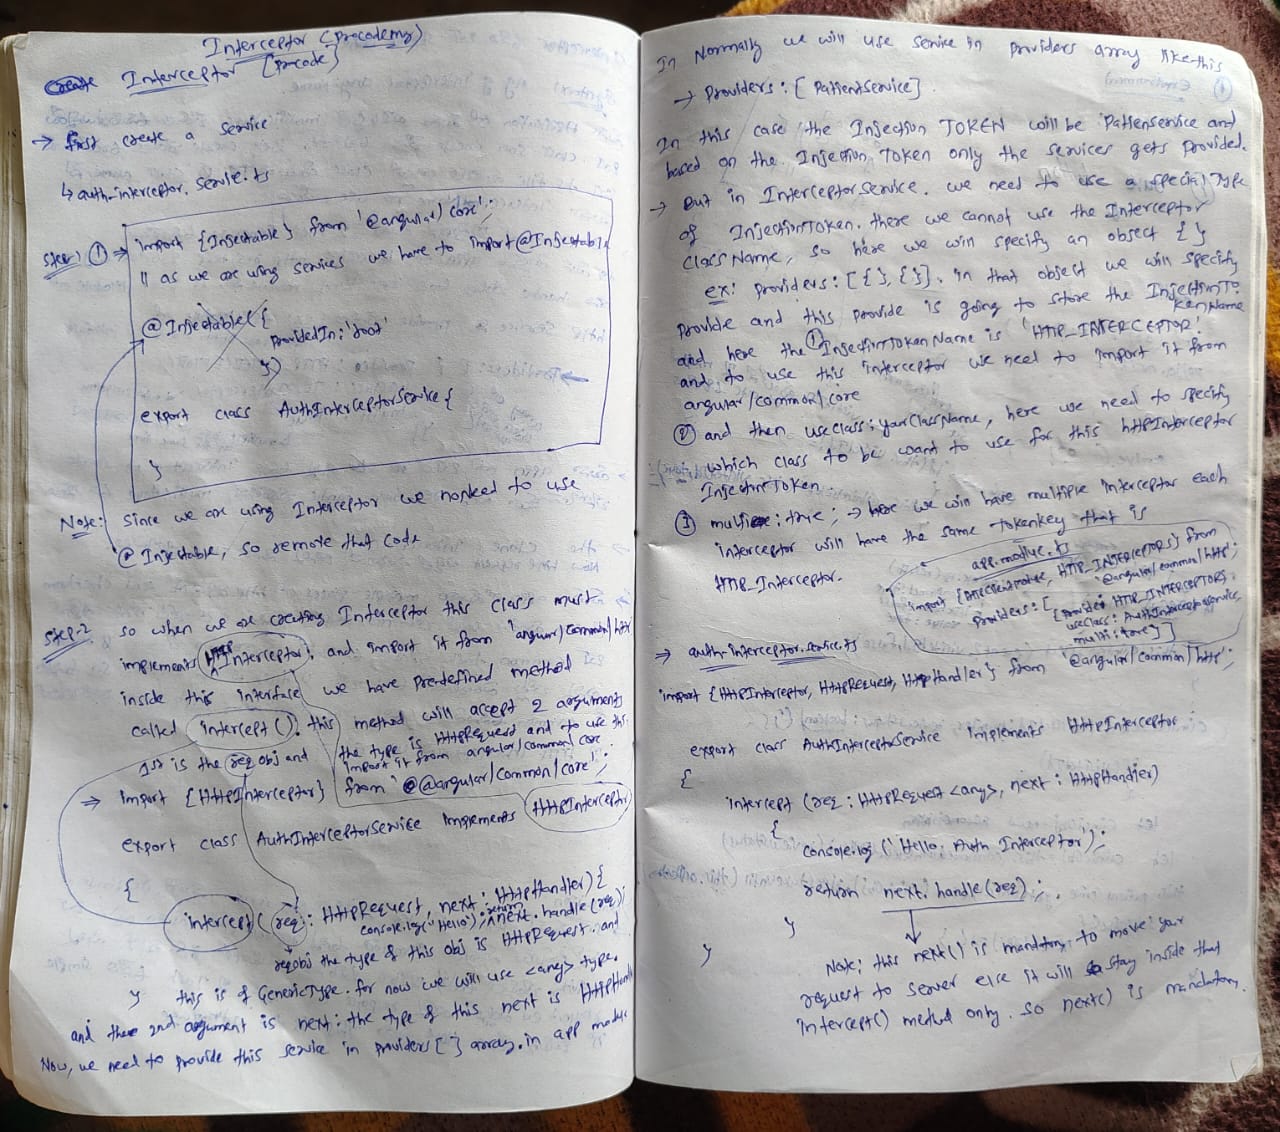 Interceptor (procademy)
Create Interceptor [procode]
→ first create a service
↳ auth-interceptor.servie.ts
Step) ① → import {Injectable} from '@angular/core';
// as we are using services we have to import @Injectable
@Injectable({
providedIn: 'root'
})
export class AuthInterceptorService {
}
Note: Since we are using Interceptor we no need to use
@Injectable, so remote that code
Step-2 so when we are creating Interceptor this class must
implements HTTP Interceptor, and import it from 'angular/common/http
inside this interface we have predefined method
called intercept(). this method will accept 2 arguments
1st is the req obj and the type is HttpRequest and to use this
import it from angular/common/core
⇒ import {HttpInterceptor} from '@angular/common/core';
export class AuthInterceptorService implements HttpInterceptor
{
intercept (req: HttpRequest, next: HttpHandler) {
console.log("Hello"); return next.handle(req);
reqobj the type of this obj is HttpRequest. and
} this is of GenericType. for now we will use <any> type.
and the 2nd argument is next: the type of this next is HttpHandler
Now, we need to provide this service in providers[ ] array. in app module
In Normally we will use service in providers array like this
→ Providers: [PatientService]
In this case the Injection TOKEN will be Patienservice and
based on the Injection Token only the services gets provided.
→ But in Interceptor service. we need to use a special Type
of InjectionToken. there we cannot use the Interceptor
className, so here we will specify an object { }
ex: providers: [{ }, { }]. in that object we will specify
provide and this provide is going to store the InjectionTo
kenName
and here the ① InjectionTokenName is 'HTTP_INTERCEPTOR'
and to use this interceptor we need to import it from
angular/common/core
② and then useclass: yourclassName, here we need to specify
which class to be want to use for this httpInterceptor
InjectionToken.
③ multi: true; → here we will have multiple interceptor each
interceptor will have the same tokenkey that is
HTTP_Interceptor.
app.module.ts
import {HttpClientModule, HTTP_INTERCEPTORS} from
'@angular/common/http';
Providers: [ {provide: HTTP_INTERCEPTORS,
useClass: AuthInterceptorservice,
multi: true}]
⇒ auth-interceptor.service.ts
import {HttpInterceptor, HttpRequest, HttpHandler} from '@angular/common/http';
export class AuthInterceptorService implements HttpInterceptor
{
intercept (req: HttpRequest<any>, next: HttpHandler)
{
console.log ('Hello: Auth Interceptor');
return next.handle(req);
}
}
Note: this next() is mandatory, to move your
request to server else it will stay inside that
intercept() method only. so next() is mandatory.